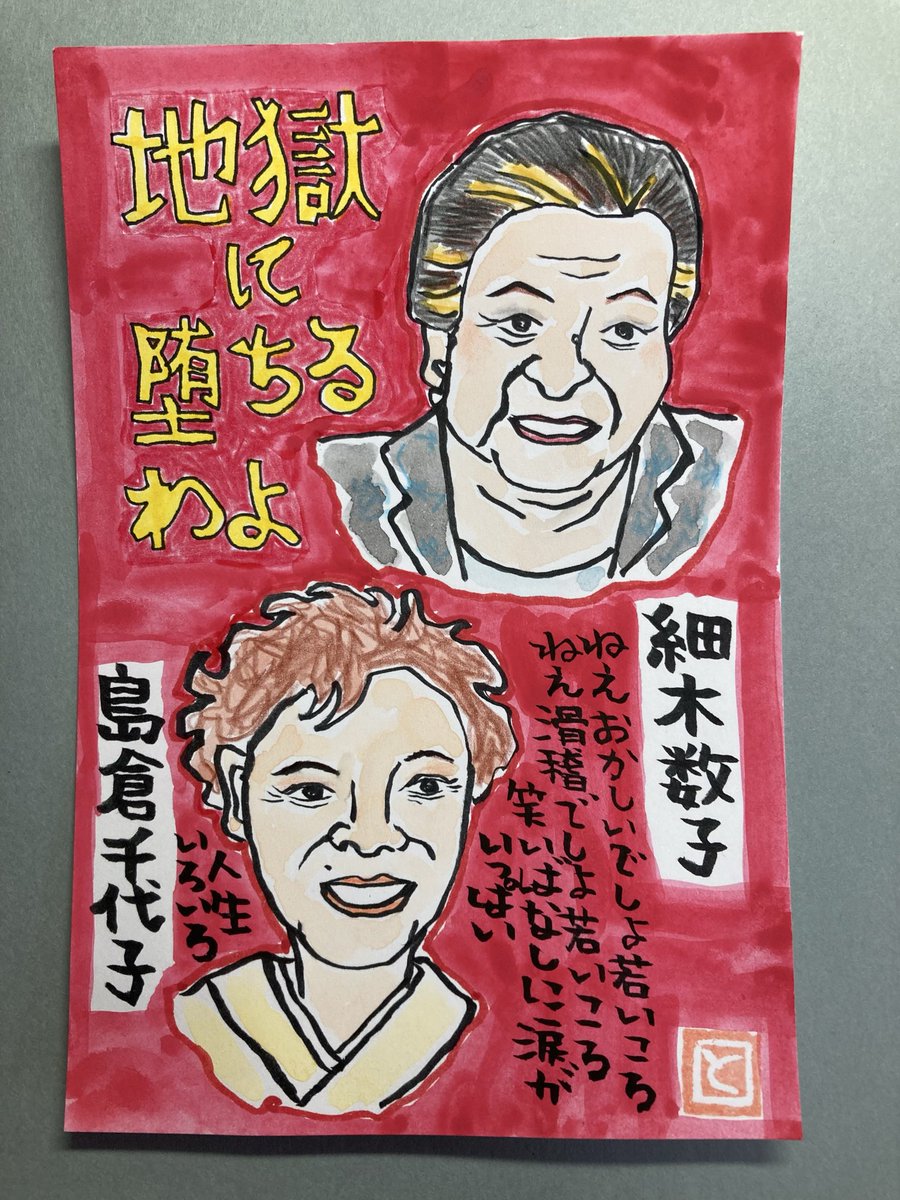 地獄
に
堕ちる
わよ
細木数子
ねえおかしいでしょ若いころ
ねえ滑稽でしょ若いころ
笑いばなしに涙が
いっぱい
島倉千代子
人生
いろいろ
と